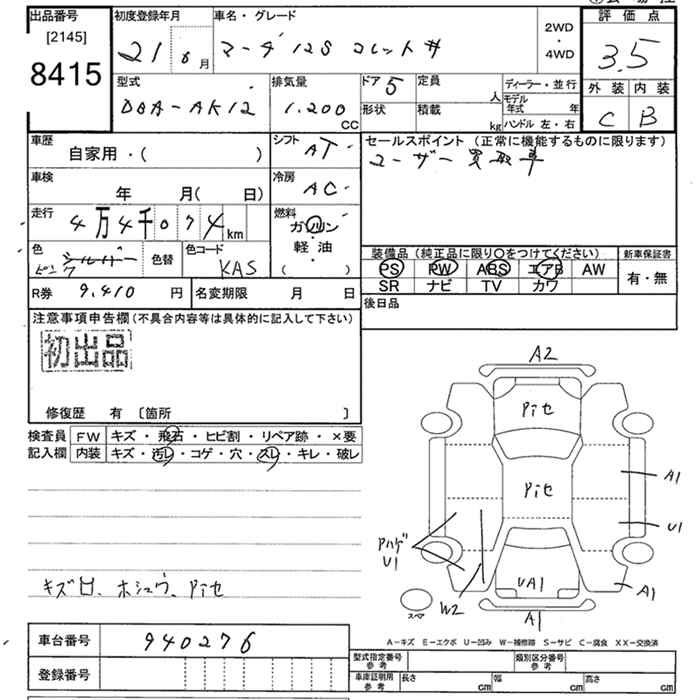 出品番号
[2145]
8415
初度登録年月
21 6月
車名・グレード
マーチ 12S コレット
2WD
・
4WD
評価点
3.5
外装 内装
C B
型式
DBA-AK12
排気量
1.200
CC
ドア 5
定員
人
形状
積載
kg
ディーラー・並行
モデル年式 年
ハンドル 左・右
車歴
自家用・( )
シフト
AT
セールスポイント(正常に機能するものに限ります)
ユーザー買取車
車検
年 月( 日)
冷房
AC
走行
4万4千074km
燃料
ガソリン
軽・油
( )
色
シルバー
ピンク
色替
色コード
KAS
装備品(純正品に限り○をつけてください)
新車保証書
PS PW ABS エアB AW
SR ナビ TV カワ
有・無
R券 9,410 円
名変期限 月 日
後日品
注意事項申告欄(不具合内容等は具体的に記入して下さい)
初出品
修復歴 有〔箇所 〕
検査員
記入欄
FW キズ・飛石・ヒビ割・リペア跡・×要
内装 キズ・汚レ・コゲ・穴・スレ・キレ・破レ
キズ凹、ホシュウ、Piセ
A2
Piセ
Piセ
A1
U1
Pハゲ
U1
UA1
W2
A1
A1
スペア
A-キズ E-エクボ U-凹み W-補修跡 S-サビ C-腐食 XX-交換済
車台番号 940276
登録番号
型式指定番号
参考
類別区分番号
参考
車庫証明用
参考
長さ cm
幅 cm
高さ cm